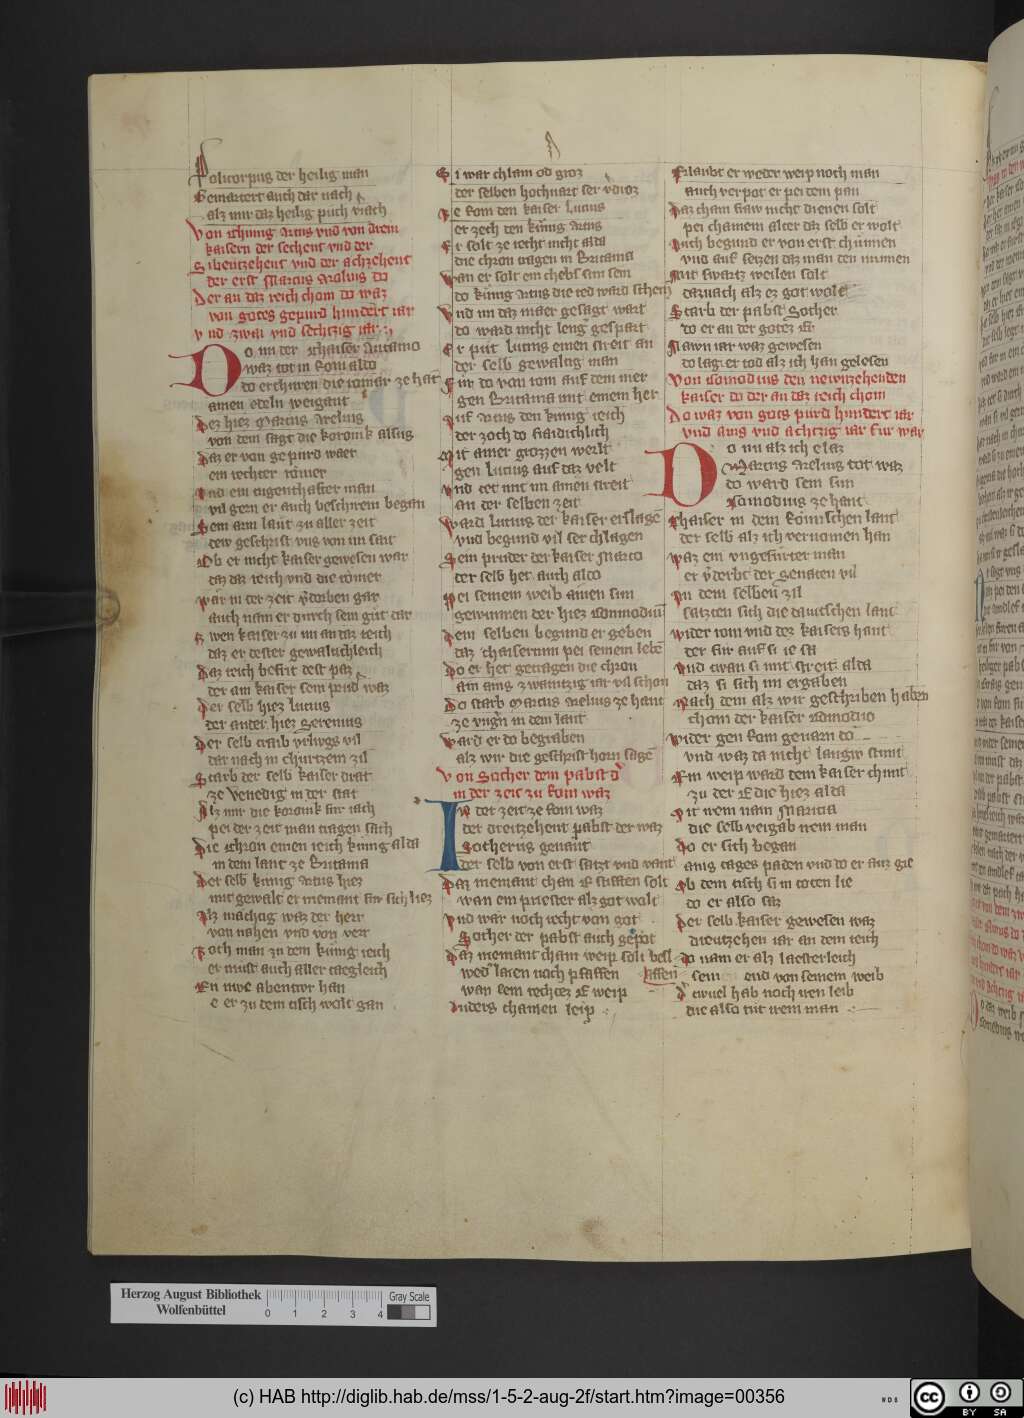 Policorpus der heilig man
Gemartert auch dar nach
alz mir daz heilig puch viach
Von chunig Artus vnd von drein
kaisern der sechent vnd der
Sibentzehent vnd der achzehent
der erst Marcus Arolius do
Der an daz reich chom do waz
von gotes gepurd hundert iar
vnd zwai vnd sechtzig iar
Do nu der chaiser Antonio
waz tot in Rom aldo
do erchuren die romär ze hant
ainen edeln weigant
Der hiez Marcus Arelius
von dem sagt die koronik alsus
Daz er von gepurd waer
ein rechter römer
vnd ein tugenthafter man
vil gern er auch beschirem began
Sein arm läut zu aller zeit
dew geschrift vns von im seit
Ob er nicht kaiser gewesen war
daz daz reich vnd die römer
wär in der zeit vdorben gar
auch nam er durch sein güt dar
wen kaiser zu im an daz reich
daz er dester gewalticleich
Daz reich besitt dest paz
der ain kaiser sein prud waz
Der selb hiez Lucius
der ander hiez Serenius
Der selb traib vrlivgs vil
dar nach in churtzem zil
Starb der selb kaiser drat
ze Venedig in der stat
Alz mir die koronik fur iach
pei der zeit man tragen sach
Die chron einen reich künig alda
in dem lant ze Britania
Der selb künig Artus hiez
mit gewalt er niemant für sich liez
Alz machtig waz der herr
von nahen vnd von verr
Noch man zu dem künig reich
er must auch aller taegleich
Ein niwe abentwr han
e er zu dem tisch wolt gan
Si war chlain od groz
der selben hochuart ser vdroz
ze Rom den kaiser Lucius
er zech den künig Artus
Er solt ze recht nicht alda
die chron tragen in Britania
wan er solt ein chebs sun sein
do künig Artus die red ward schein
vnd im daz maer gesagt wart
do ward nicht leng gespart
Er put Lucius einen streit an
der selb gewaltig man
Fur do von rom auf dem mer
gen Britania mit einem her
Auf Artus den künig reich
der zoch do fraidichlich
Mit ainer grozzen welt
gen Lucius auf daz velt
vnd tet mit im ainen streit
an der selben zeit
ward Lucius der kaiser erslagē
vnd begund vil ser chlagen
Sein pruder der kaiser Marco
der selb het auch aldo
Pei seinem weib ainen sun
gewunnen der hiez Commodiū
Dem selben begund er geben
daz chaisertum pei seinem lebē
Do er het getragen die chron
ain ains zwaintzig iar vil schon
Do starb Marcus Arelius ze hant
ze vngn in dem lant
ward er do begraben
alz wir die geschrift horn sagē
Von Sother dem pabst d
in der zeit zu Rom waz
In der zeit ze Rom waz
der dreitzehent pabst der waz
Sotherus genant
der selb von erst satzt vnd vant
Daz niemant chain E stifften solt
wan ein priester alz got wolt
vnd wär noch recht von got
Sother der pabst auch gepot
Daz niemant chain weip solt besl
weder laien noch pfaffen
affen
wan sein rechtez E weip
Anders chainen leip
Erlaubt er weder weip noch man
auch verpot er pei dem pan
Daz chain fraw nicht dienen solt
pei chainem alter daz selb er wolt
Auch begund er von erst chünnen
vnd auf setzen daz man den nunnen
Mit swartz weilen solt
darnach alz ez got wolt
Starb der pabst Sother
do er an der gotez er
Newn iar waz gewesen
do lag er tod alz ich han gelesen
Von Comodius den newtzehenden
kaiser do der an daz reich chom
Do waz von gots purd hundert iar
vnd ains vnd achtzig iar für war
Do nu alz ich e laz
Marcus Arelius tot waz
do ward sein sun
Comodius ze hant
Chaiser in dem Römischen lant
der selb alz ich vernomen han
waz ein vngefürter man
er vderbt der senaten vil
In dem selben zil
satzten sich die dautschen lant
wider rom vnd dez kaisers hant
der für auf si ie sa
vnd twan si mit streit alda
daz si sich im ergaben
Nach dem alz wir geschriben haben
chom der kaiser Comodio
wider gen Rom geuarn do
vnd waz da nicht langiv stunt
Ein weip ward dem kaiser chunt
zu der E die hiez alda
Mit irem nam Marcia
die selb vergab irem man
Do er sich began
ains tages paden vnd do er auz gie
Ob dem tisch si in toten lie
do er also saz
Der selb kaiser gewesen waz
dreutzehen iar an dem reich
do nam er alz laesterleich
sein end von seinem weib
d tivuel hab noch iren leib
die also tut irem man
Herzog August Bibliothek
Wolfenbüttel
0 1 2 3 4
Gray Scale
(c) HAB http://diglib.hab.de/mss/1-5-2-aug-2f/start.htm?image=00356
WDB
cc BY SA